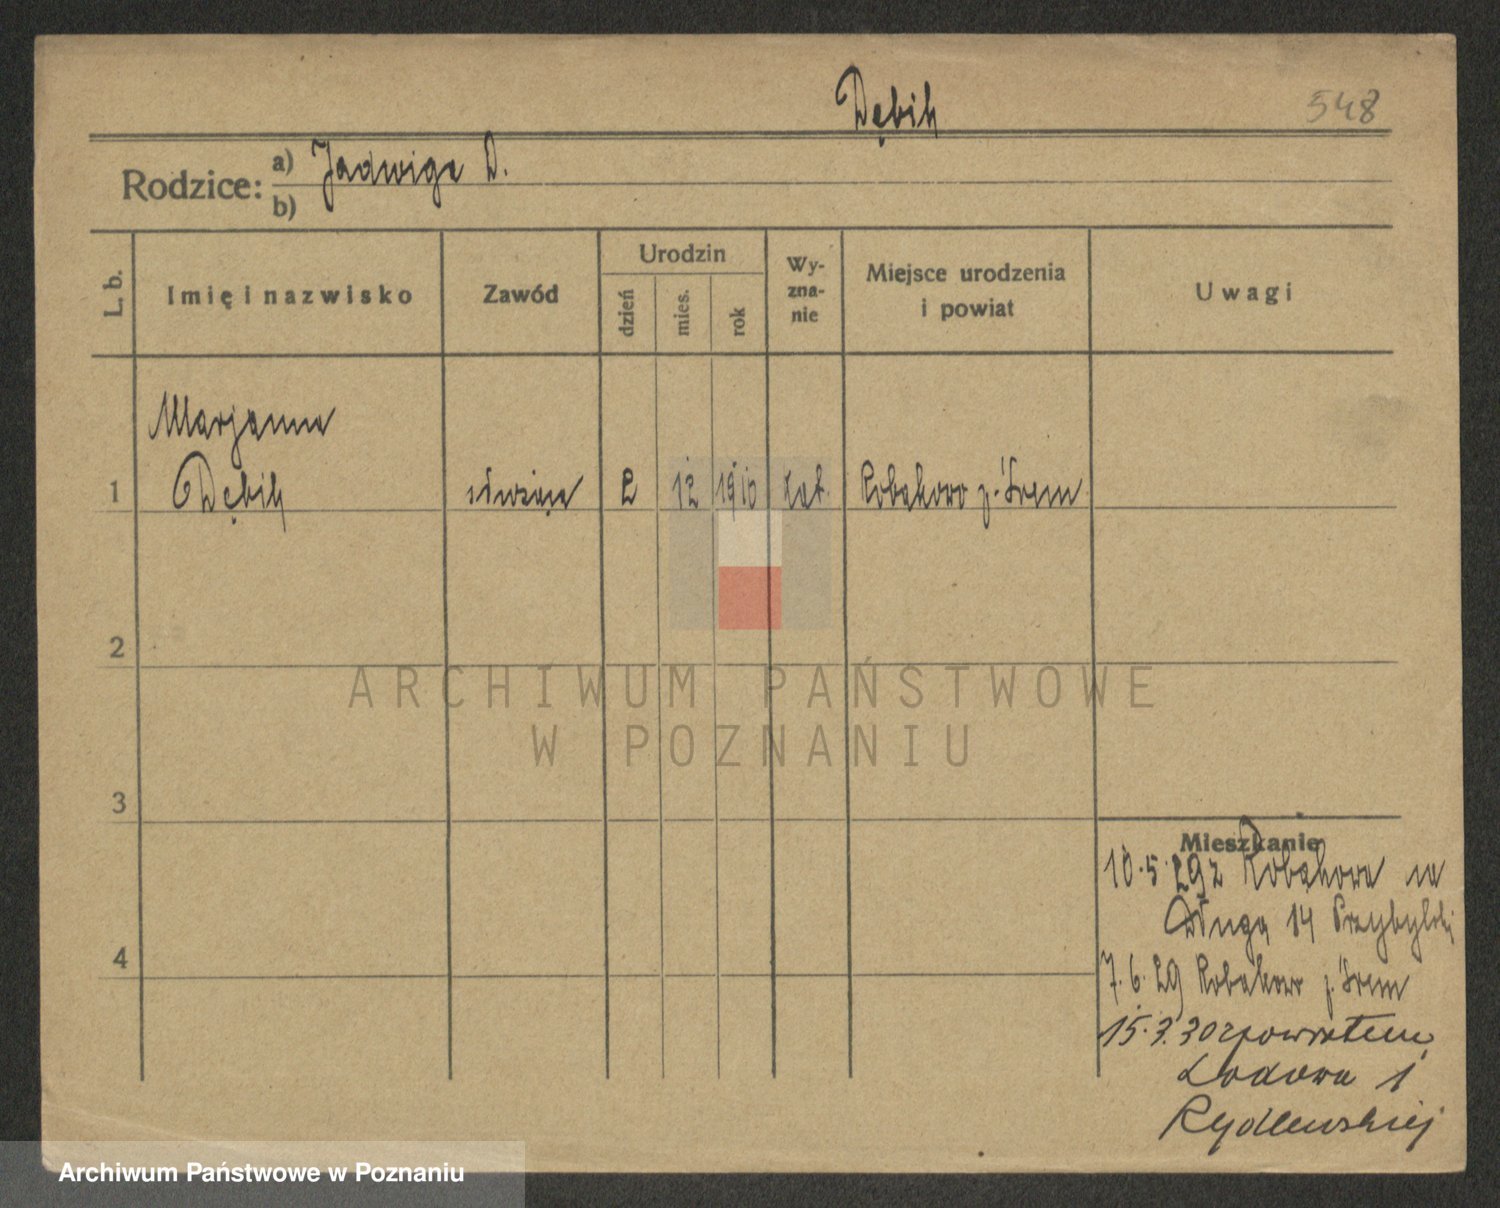 Dębik
548
Rodzice: a) Jadwiga D.
b)
L. b.
Imię i nazwisko
Zawód
Urodzin
dzień
mies.
rok
Wy-
zna-
nie
Miejsce urodzenia
i powiat
Uwagi
Marjanna
1 Dębik służąca 2 12 1910 kat. Robakowo p. Śrem
2
3
4
Mieszkanie
10.5.29 z Robakowa na
Długą 14 Przybylski
7.6.29 Robakowo p. Śrem
15.3.30 z powrotem
Lodowa 1
Rydlewskiej
ARCHIWUM PAŃSTWOWE
W POZNANIU
Archiwum Państwowe w Poznaniu